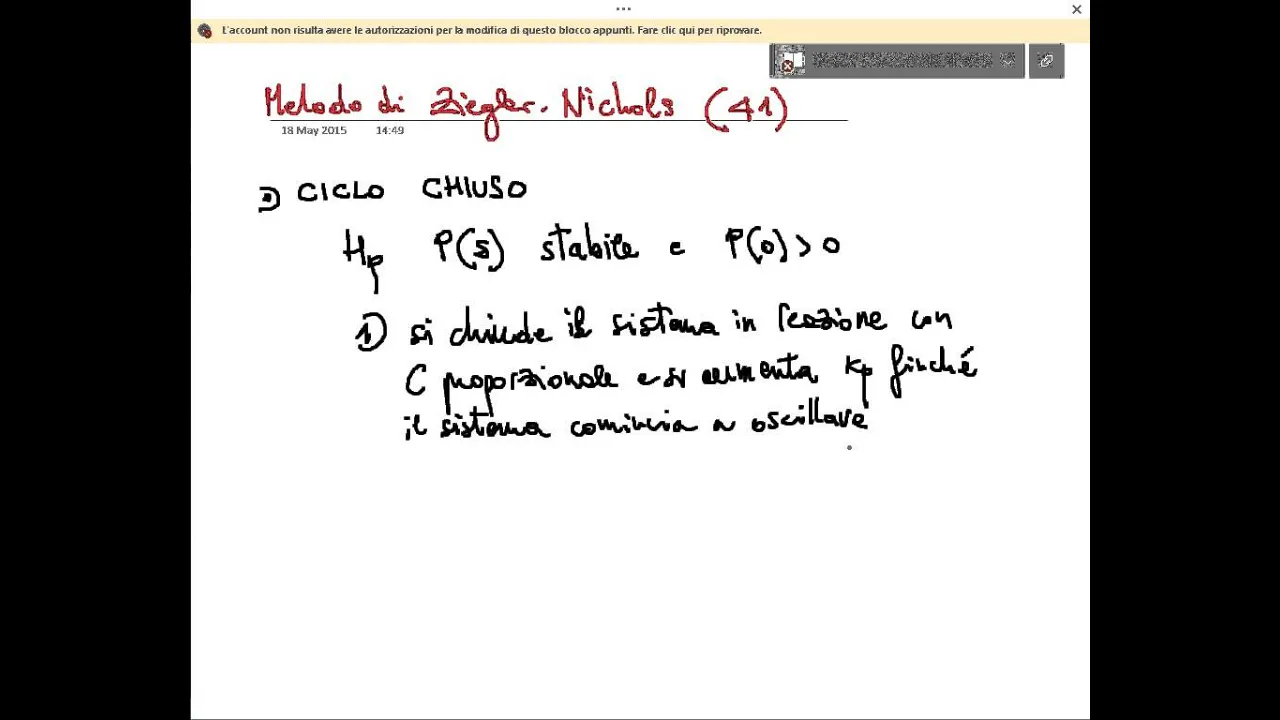 L'account non risulta avere le autorizzazioni per la modifica di questo blocco appunti. Fare clic qui per riprovare.
Metodo di Ziegler-Nichols (41)
18 May 2015 14:49
CICLO CHIUSO
Hp P(s) stabile e P(0)>0
1) si chiude il sistema in reazione con
C proporzionale e si aumenta Kp finché
il sistema comincia a oscillare